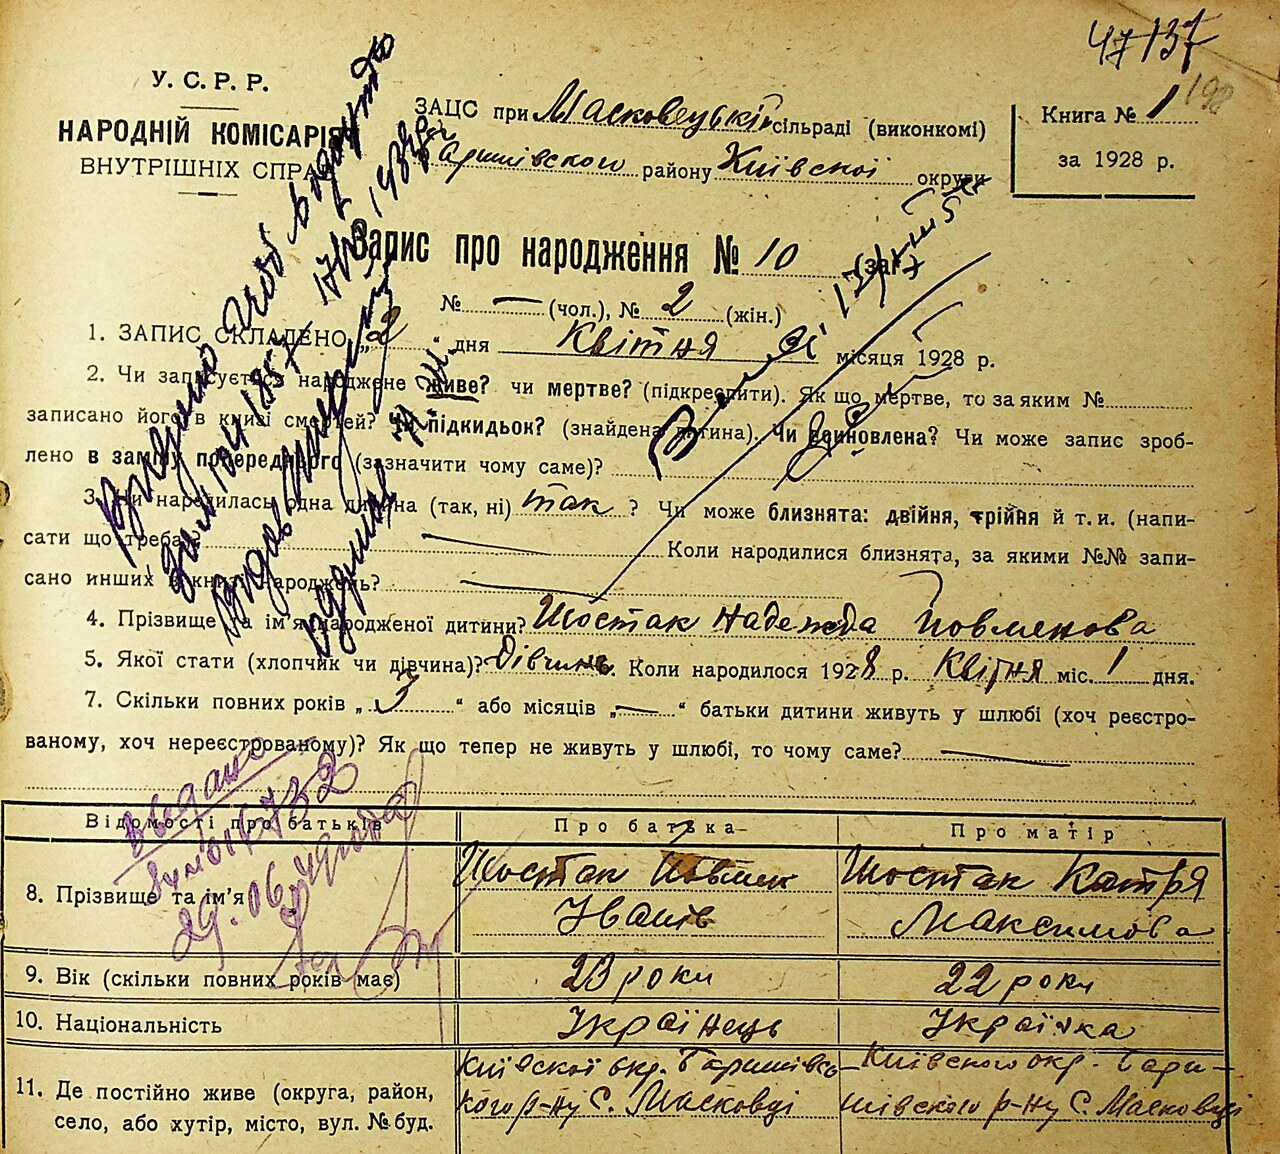 47137
198
У. С. Р. Р.
НАРОДНІЙ КОМІСАРІЯТ
ВНУТРІШНІХ СПРАВ
ЗАЦС при Масковецькій сільраді (виконкомі)
Баришівского району Київскої округи
Книга № 1
за 1928 р.
Запис про народження № 10 (заг.)
№ — (чол.), № 2 (жін.)
1. ЗАПИС СКЛАДЕНО „2“ дня Квітня місяця 1928 р.
2. Чи записується народжене живе? чи мертве? (підкреслити). Як що мертве, то за яким №
записано його в книзі смертей? Чи підкидьок? (знайдена дитина). Чи всиновлена? Чи може запис зроб-
лено в заміну попереднього (зазначити чому саме)?
3. Чи народилась одна дитина (так, ні) так ? Чи може близнята: двійня, трійня й т. и. (напи-
сати що треба) — Коли народилися близнята, за якими №№ запи-
сано инших в книзі народжень? —
4. Прізвище та ім'я народженої дитини? Шостак Надежда Йовменова
5. Якої стати (хлопчик чи дівчина)? дівчина. Коли народилося 1928 р. Квітня міс. 1 дня.
7. Скільки повних років „3“ або місяців „—“ батьки дитини живуть у шлюбі (хоч реєстро-
ваному, хоч нереєстрованому)? Як що тепер не живуть у шлюбі, то чому саме? —
Відомості про батьків
Про батька
Про матір
8. Прізвище та ім'я
Шостак Йовмен
Іванів
Шостак Катря
Максимова
9. Вік (скільки повних років має)
23 роки
22 роки
10. Національність
Українець
Українка
11. Де постійно живе (округа, район,
село, або хутір, місто, вул. № буд.
Київскої окр. Баришівсь-
кого р-ну С. Масковці
Київского окр. Бари-
шівского р-ну С. Масковці
29.06